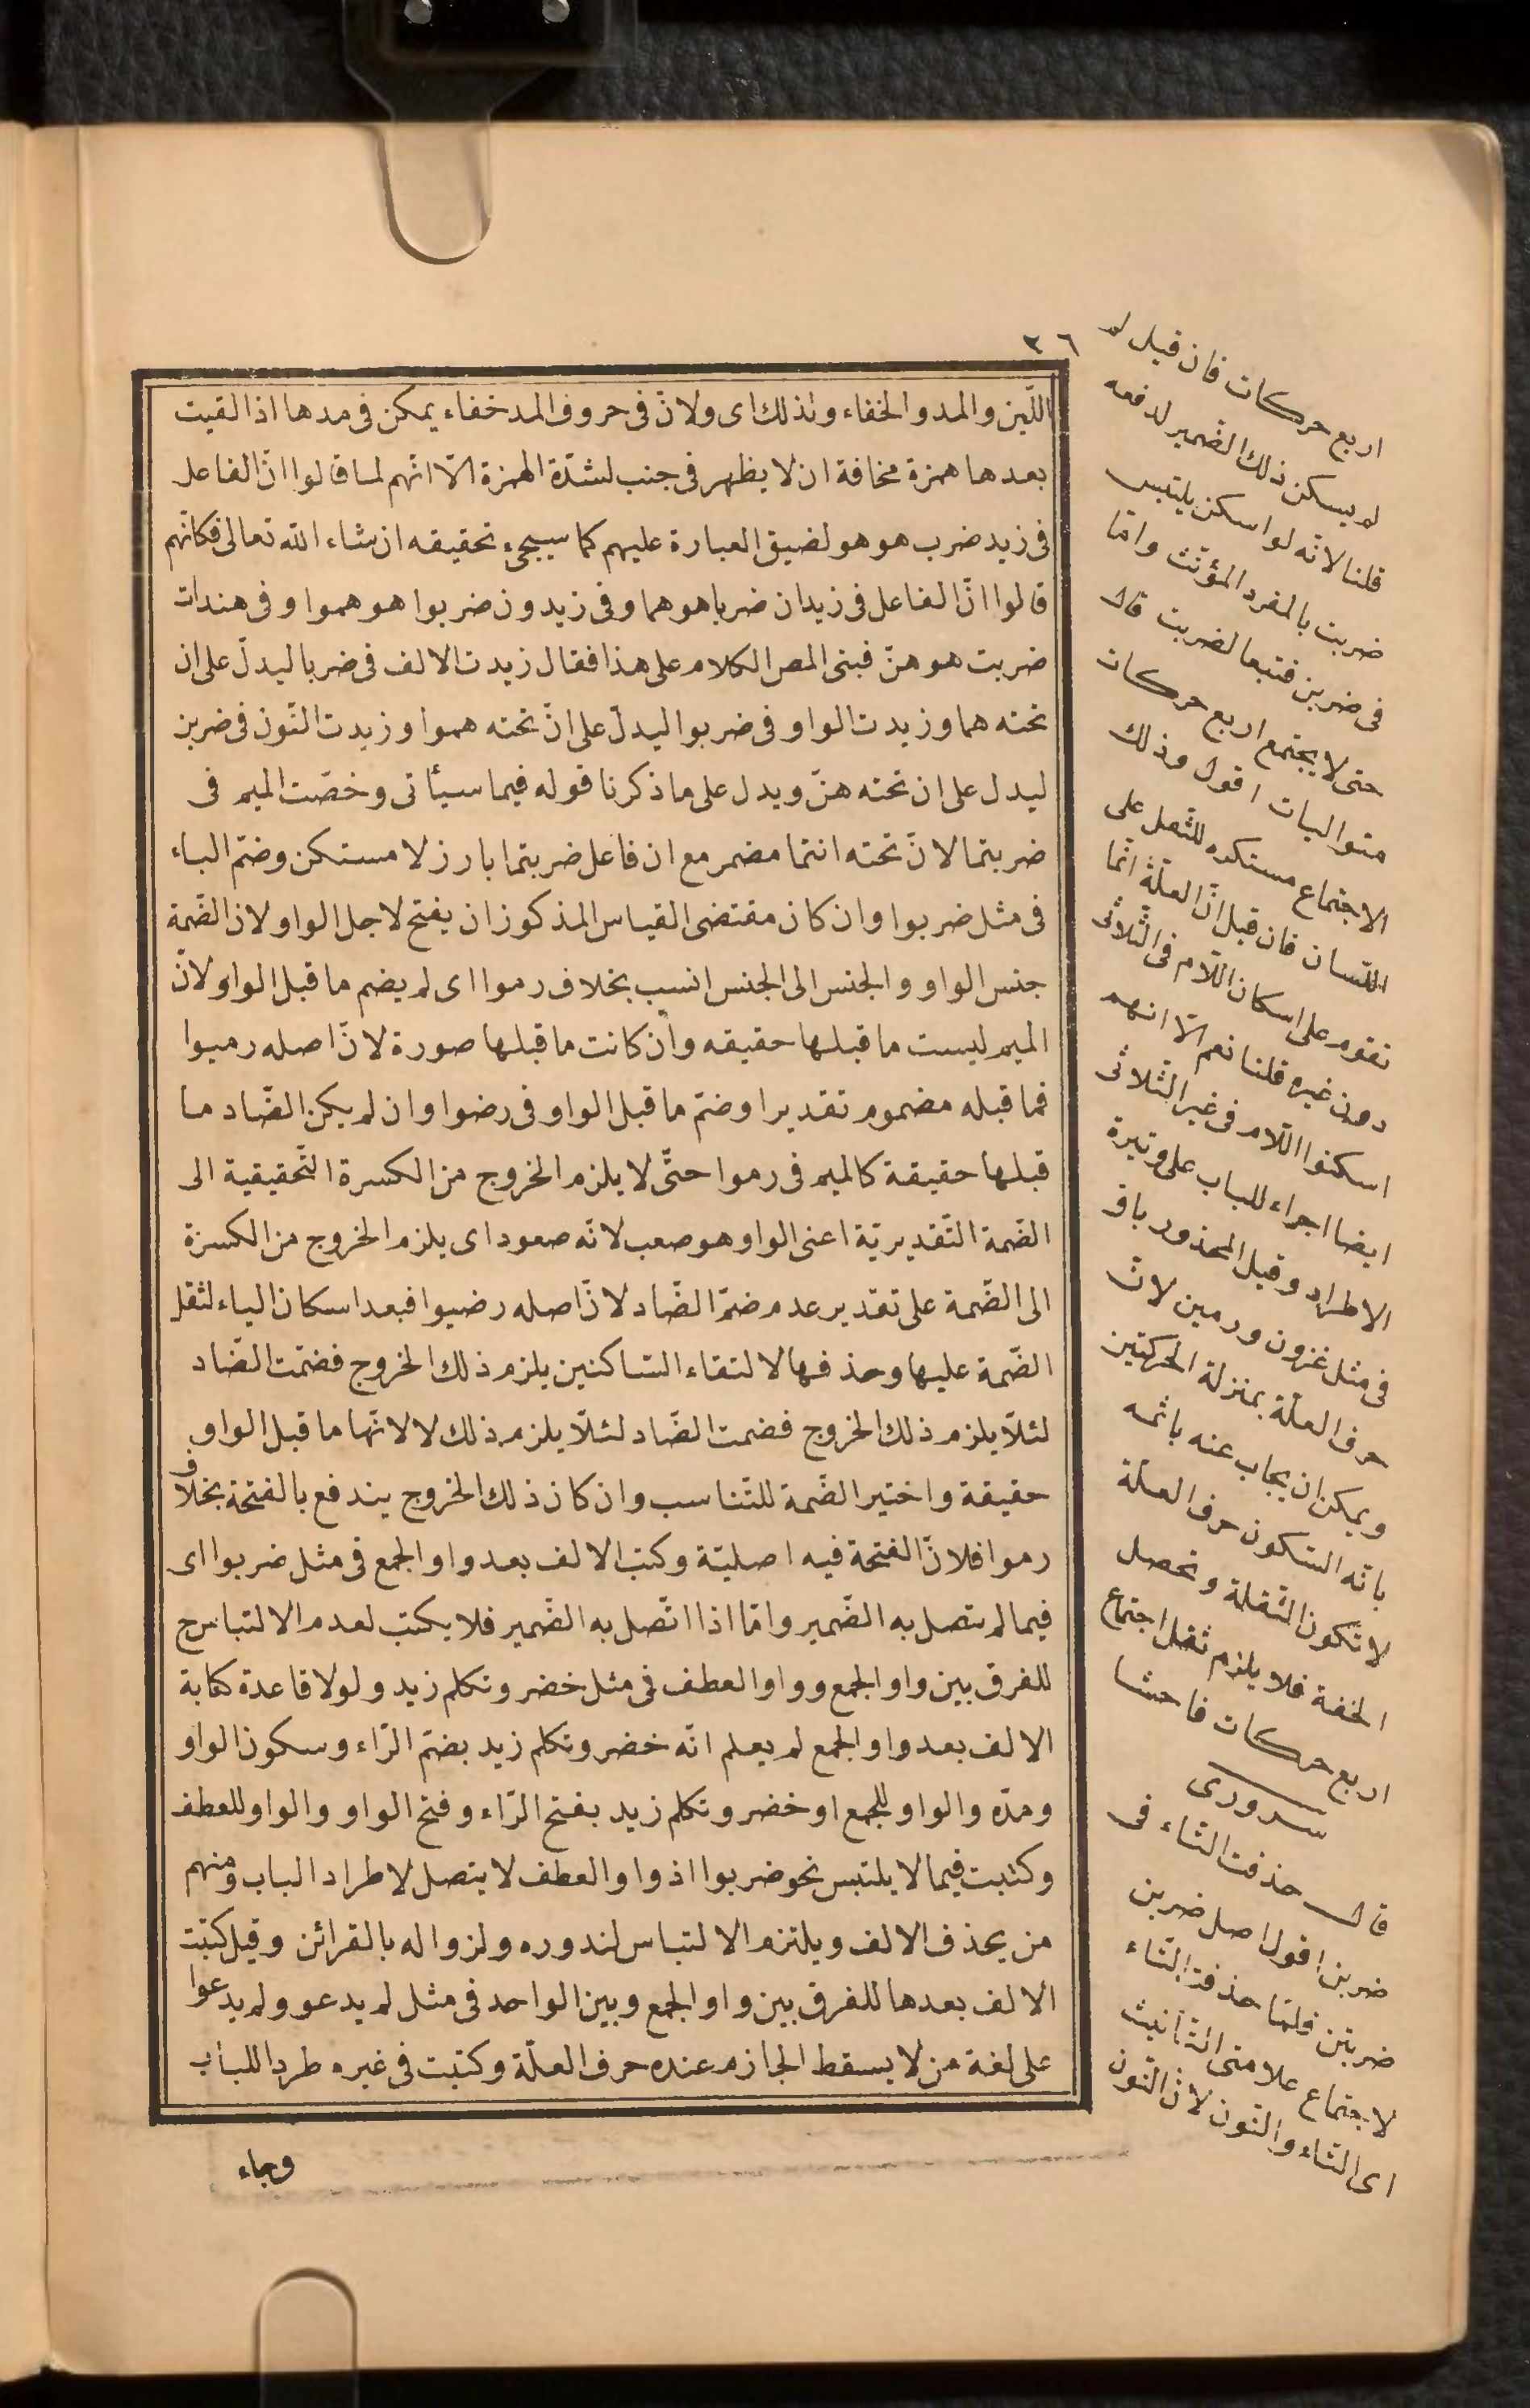 ٣٦
اللّين والمد والخفاء ولذلك اى ولانّ فى حروف المد خفاء يمكن فى مدها اذا لقيت
بعدها همزة مخافة ان لا يظهر فى جنب لشدّة الهمزة الّا انّهم لما قالوا انّ الفاعل
فى زيد ضرب هو هو لضيق العبارة عليهم كما سيجئ تحقيقه ان شاء الله تعالى فكانّهم
قالوا انّ الفاعل فى زيدان ضربا هو هما وفى زيدون ضربوا هو هموا وفى هندات
ضربت هو هنّ فبنى المص الكلام على هذا فقال زيدت الالف فى ضربا ليدلّ على ان
تحته هما وزيدت الواو فى ضربوا ليدلّ على انّ تحته هموا وزيدت النّون فى ضربن
ليدل على ان تحته هنّ ويدل على ما ذكرنا قوله فيما سيأتى وخصّت الميم فى
ضربتما لانّ تحته انتما مضمر مع ان فاعل ضربتما بارز لا مستكن وضمّ الباء
فى مثل ضربوا وان كان مقتضى القياس المذكور ان يفتح لاجل الواو لان الضّمة
جنس الواو والجنس الى الجنس انسب بخلاف رموا اى لم يضم ما قبل الواو لانّ
الميم ليست ما قبلها حقيقه وان كانت ما قبلها صورة لانّ اصله رميوا
فما قبله مضموم تقديرا وضمّ ما قبل الواو فى رضوا وان لم يكن الضّاد ما
قبلها حقيقة كالميم فى رموا حتّى لا يلزم الخروج من الكسرة التّحقيقية الى
الضّمة التّقديريّة اعنى الواو وهو صعب لانّه صعود اى يلزم الخروج من الكسرة
الى الضّمة على تقدير عدم ضمّ الضّاد لانّ اصله رضيوا فبعد اسكان الياء لثقل
الضّمة عليها وحذفها لالتقاء السّاكنين يلزم ذلك الخروج فضمّت الضّاد
لئلّا يلزم ذلك الخروج فضمت الضّاد لئلّا يلزم ذلك لا لانّها ما قبل الواو
حقيقة واختير الضّمة للتّناسب وان كان ذلك الخروج يندفع بالفتحة بخلاف
رموا فلانّ الفتحة فيه اصليّة وكتب الالف بعد واو الجمع فى مثل ضربوا اى
فيما لم يتصل به الضّمير وامّا اذا اتّصل به الضّمير فلا يكتب لعدم الالتباس ح
للفرق بين واو الجمع وواو العطف فى مثل خضر وتكلم زيد ولولا قاعدة كتابة
الالف بعد واو الجمع لم يعلم انّه خضر وتكلم زيد بضمّ الرّاء وسكون الواو
ومدّه والواو للجمع او خضر وتكلم زيد بفتح الرّاء وفتح الواو والواو للعطف
وكتبت فيما لا يلتبس نحو ضربوا اذ واو العطف لا يتصل لاطراد الباب ومنهم
من يحذف الالف ويلتزم الالتباس لندوره ولزواله بالقرائن وقيل كتبت
الالف بعدها للفرق بين واو الجمع وبين الواحد فى مثل لم يدعو ولم يدعوا
على لغة من لا يسقط الجازم عنده حرف العلّة وكتبت فى غيره طردا للباب
وجاء
اربع حركات فان قيل لم
لم يسكن ذلك الضّمير لدفعه
قلنا لانّه لو اسكن يلتبس
ضربت بالمفرد المؤنّث وامّا
فى ضربن فتبعا لضربت قال
حتى لا يجتمع اربع حركات
متواليات اقول وذلك
الاجتماع مستكره للثّقل على
اللّسان فان قيل انّ العلّة انّما
تقوم على اسكان اللّام فى الثّلاثى
دون غيره قلنا نعم الّا انهم
اسكنوا اللّام فى غير الثّلاثى
ايضا اجراء للباب على وتيرة
الاطراد وقيل المحذور باق
فى مثل غزون ورمين لانّ
حرف العلّة بمنزلة الحركتين
ويمكن ان يجاب عنه بانّه
بانّه السّكون حرف العلّة
لا تكون الثّقلة وتحصل
الخفة فلا يلزم ثقل اجتماع
اربع حركات فاحشا
سرورى
قال حذفت التّاء فى
ضربن اقول اصل ضربن
ضربتن فلمّا حذفت التّاء
لاجتماع علامتى التأنيث
اى التّاء والنّون لانّ النّون